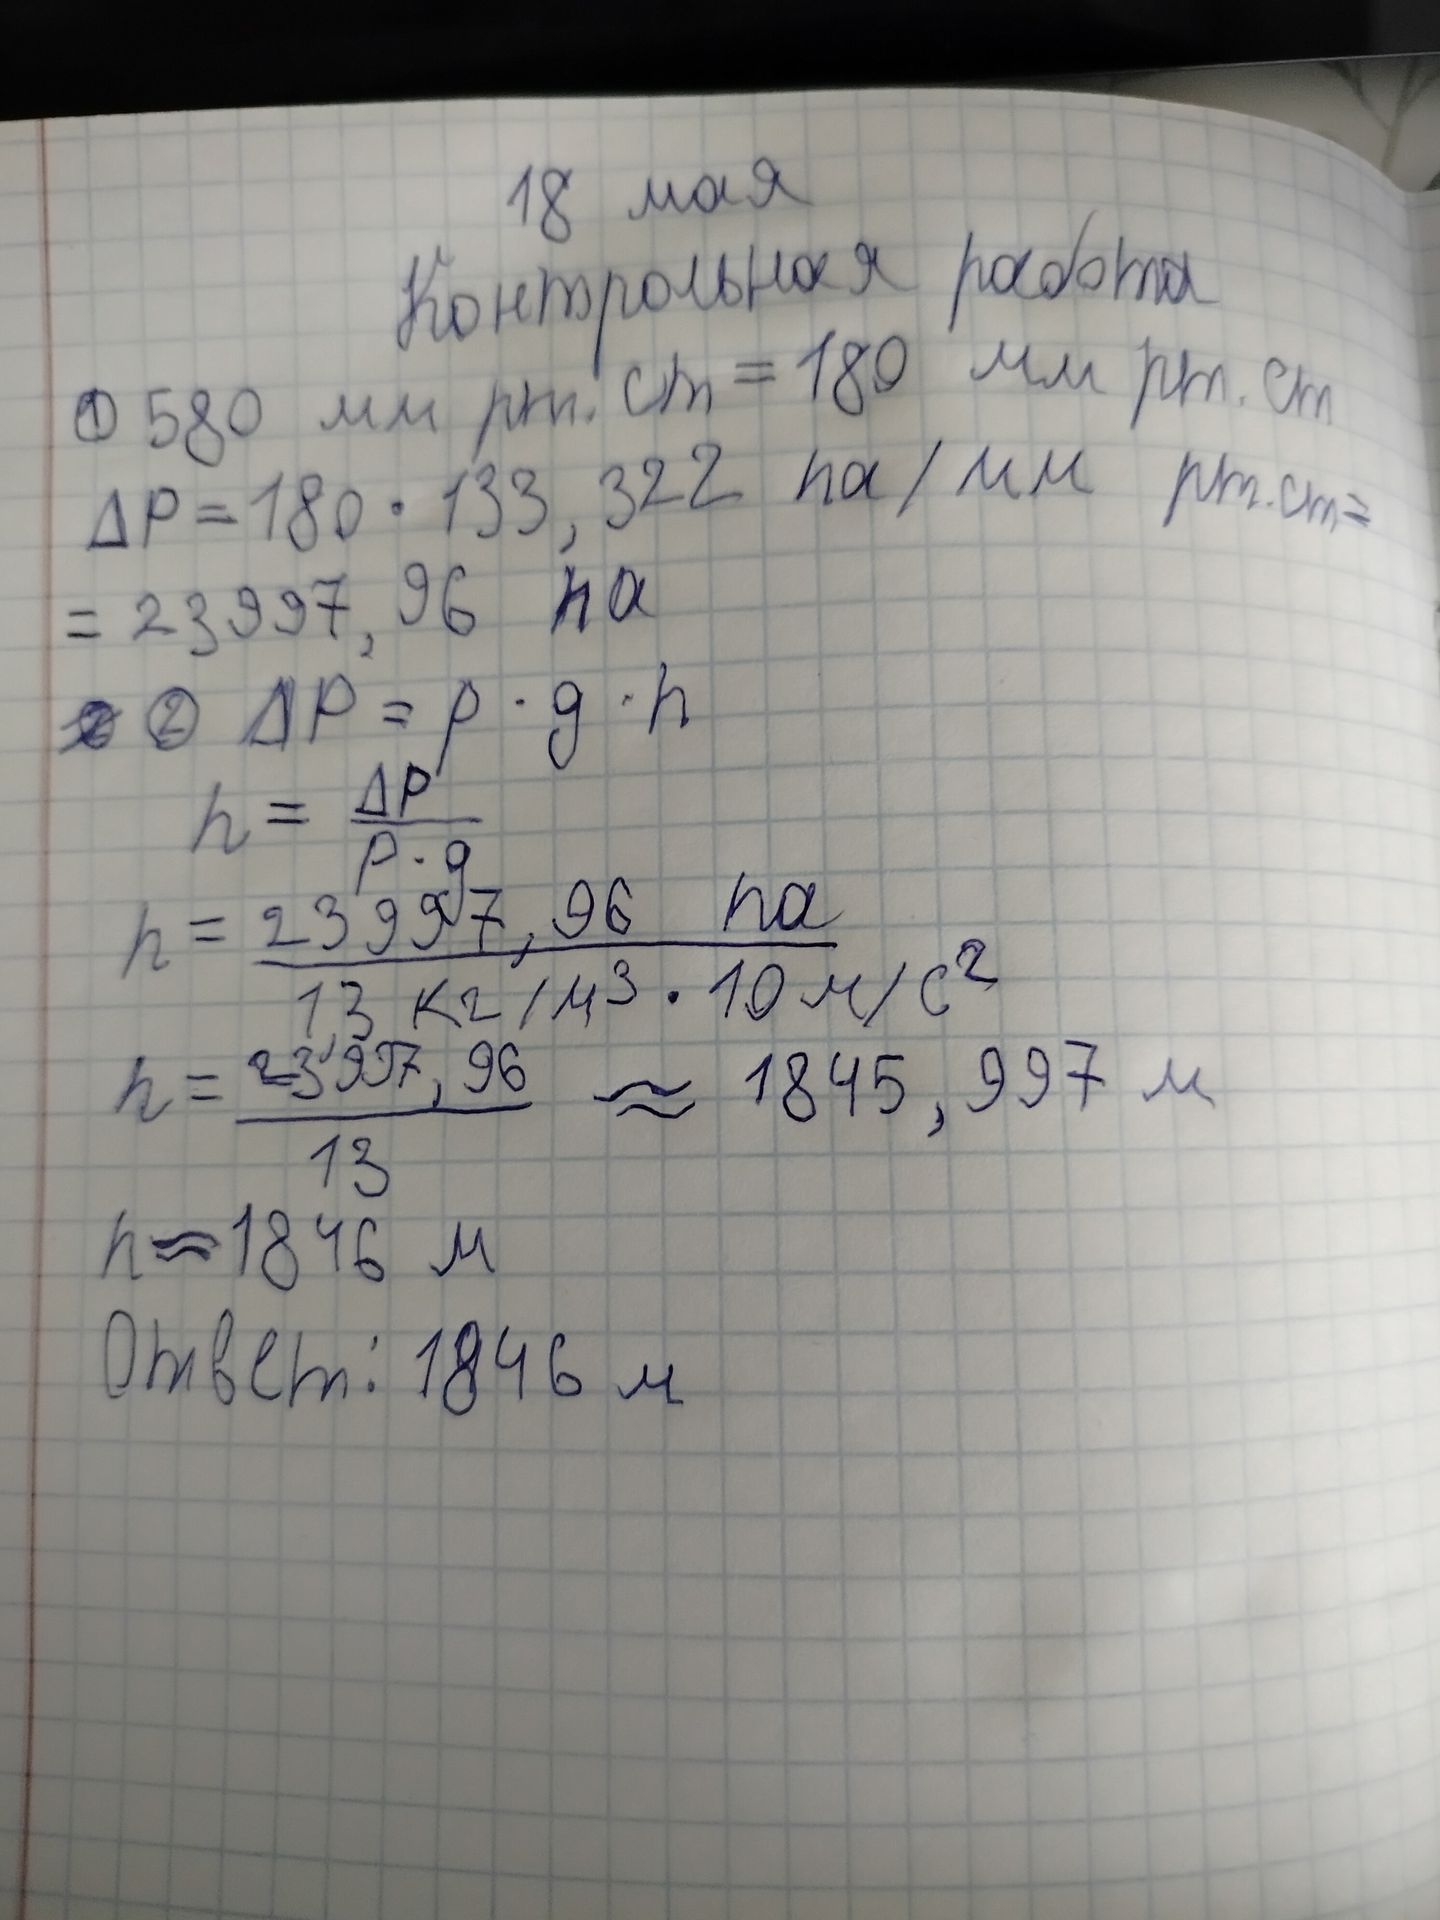 18 мая
Контрольная работа
① 580 мм рт. ст = 180 мм рт. ст
ΔP = 180 · 133,322 па/мм рт.ст =
= 23997,96 па
② ΔP = ρ · g · h
h = ΔP
ρ · g
h = 23997,96 па
1,3 кг/м³ · 10 м/с²
h = 23997,96 ≈ 1845,997 м
13
h ≈ 1846 м
Ответ: 1846 м